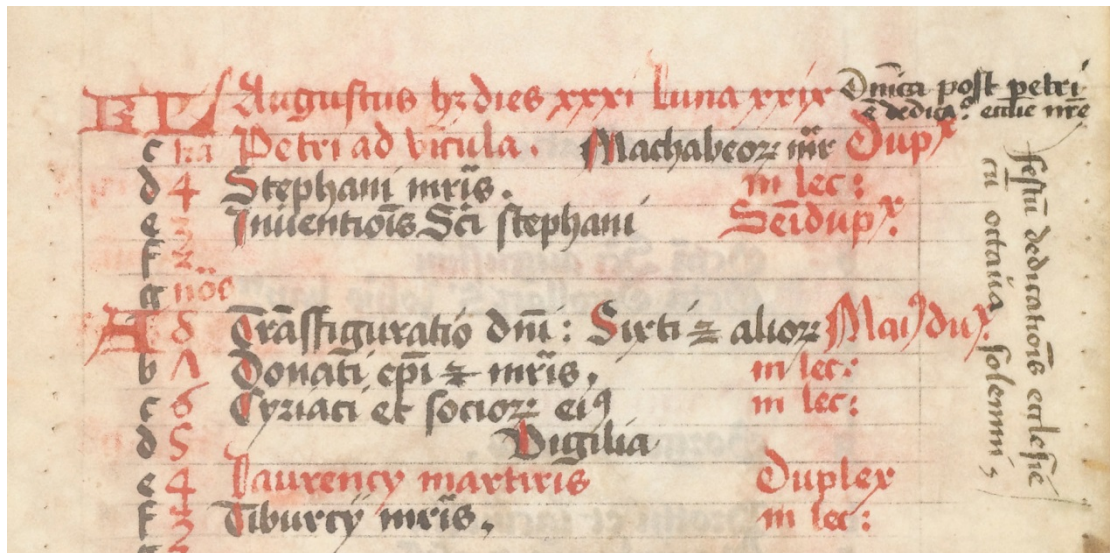 KL Augustus hꝫ dies xxxi Luna xxix
Dn̄ica post petri
ē dedicac̄o eccl̄ie nr̄e
c ka Petri ad vīcula. Machabeoꝝ mr̄ Dupˣ
d 4 Stephani mr̄is. iii lec:
e 3 Inuentiōis Sc̄i stephani Sēidupˣ:
f 2
g nōs
A 8 Trāsfiguratio dn̄i: Sixti ⁊ alioꝝ Maiꝰ duˣ.
b Λ Donati ep̄i ⁊ mr̄is. iii lec:
c 6 Cyriaci et socioꝝ eiꝰ iii lec:
d 5 Vigilia
e 4 Laurencÿ martiris Duplex
f 3 Tiburcÿ mr̄is. iii lec:
festū dedicatiōis ecclesie
cū octaua solemni